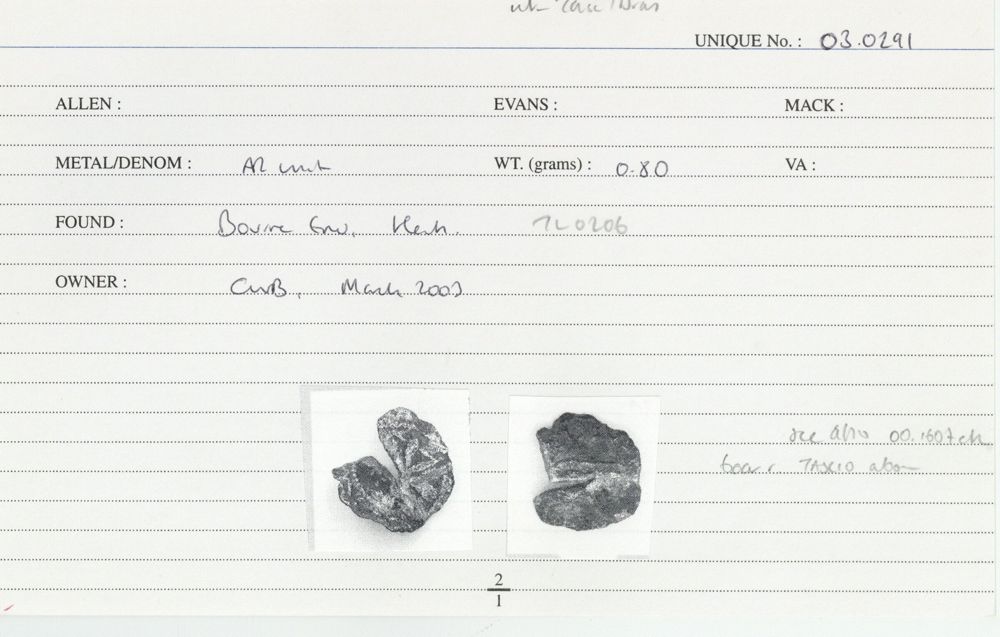 UNIQUE No. : 03.0291
ALLEN : EVANS : MACK :
METAL/DENOM : AR unit WT. (grams) : 0.80 VA :
FOUND : Bourne End, Herts. TL0206
OWNER : CWB, March 2003
see also 00.1607
boar TASCIO above
2
1